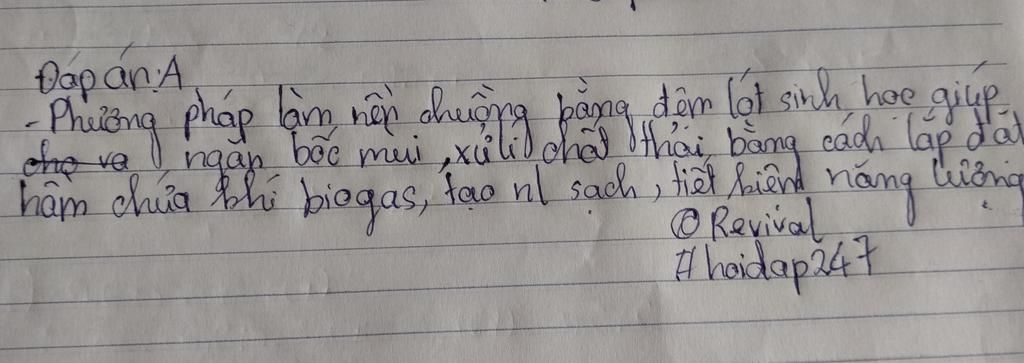 Đáp án: A
- Phương pháp làm nền chuồng bằng đệm lót sinh học giúp
cho và ngăn bốc mùi, xử lí chất thải bằng cách lắp đặt
hầm chứa khí biogas, tạo nl sạch, tiết kiệm năng lương
@Revival
#hoidap247